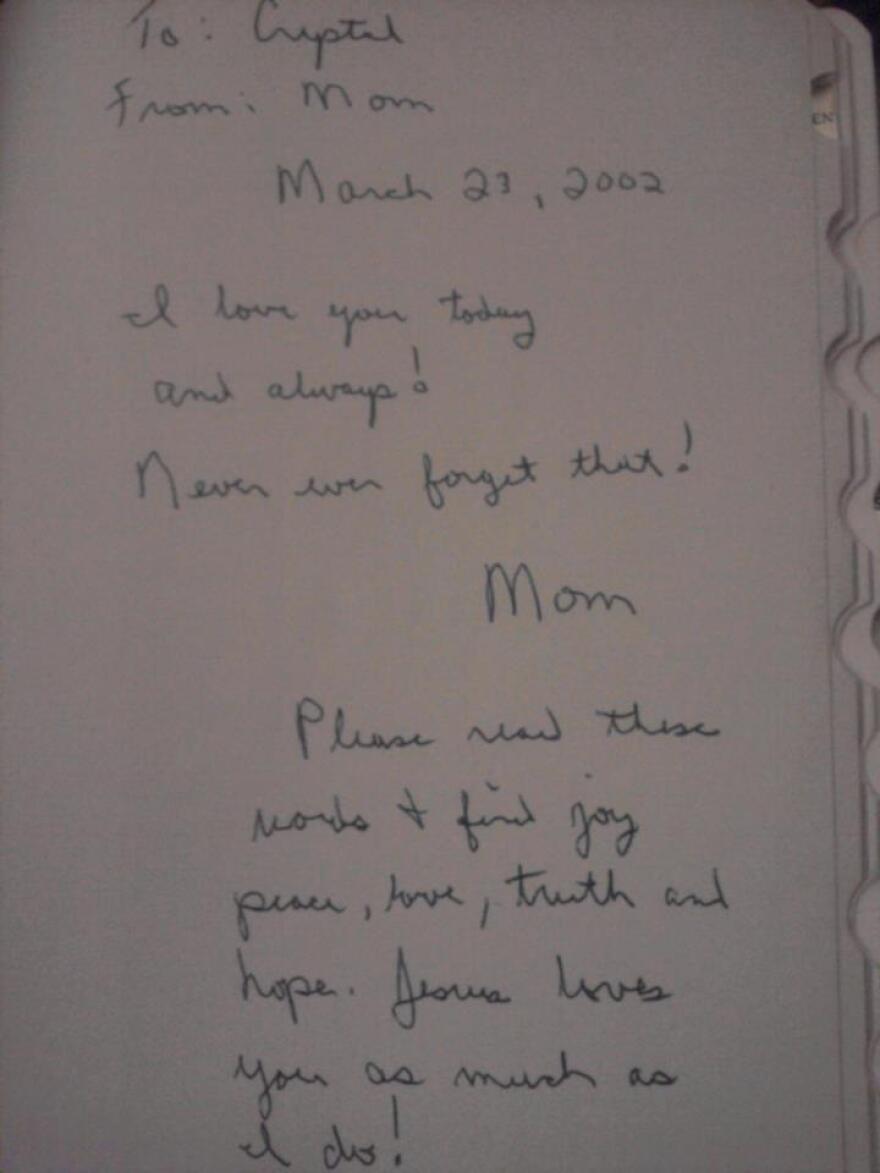 To: Crystal
From: Mom
March 23, 2002
I love you today
and always!
Never ever forget that!
Mom
Please read these
words & find joy
peace, love, truth and
hope. Jesus loves
you as much as
I do!
EN